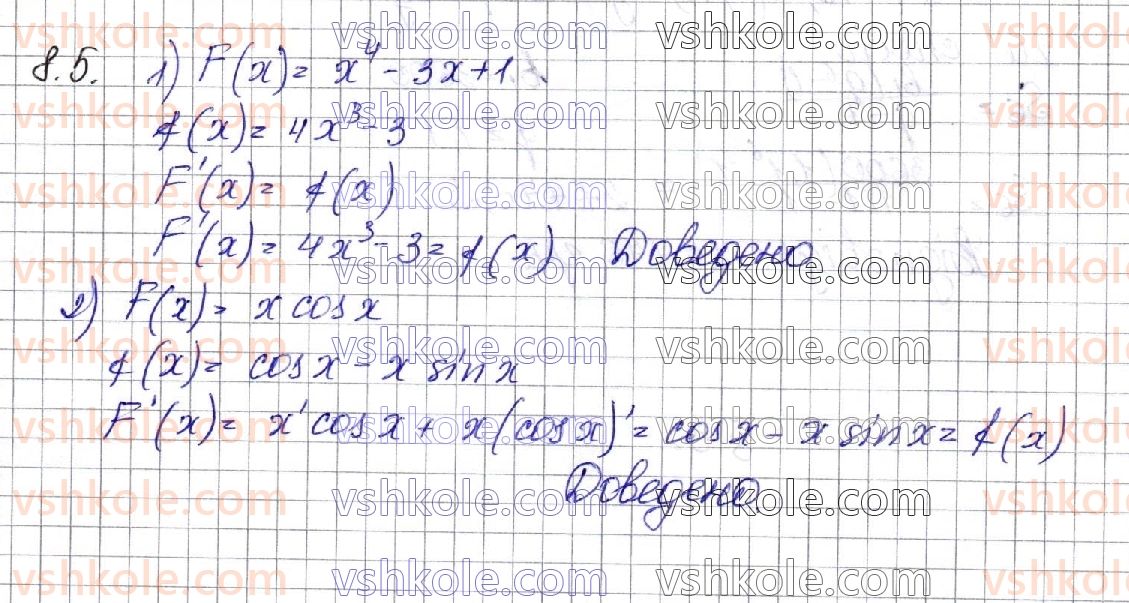 8.5. 1) F(x) = x⁴ - 3x + 1.
f(x) = 4x³ - 3
F'(x) = f(x)
F'(x) = 4x³ - 3 = f(x) Доведено
2) F(x) = x cos x
f(x) = cos x - x sin x
F'(x) = x' cos x + x(cos x)' = cos x - x sin x = f(x)
Доведено.